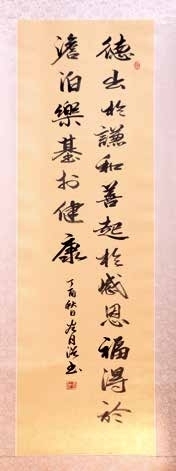 德出於謙和善起於感恩福得於
澹泊樂基於健康
丁酉秋日 月 书